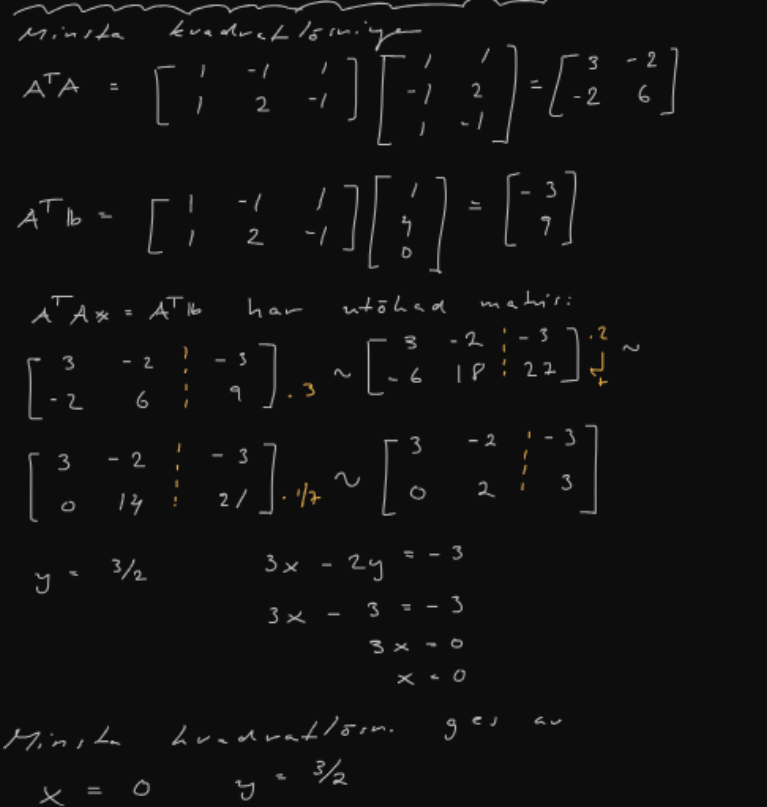 Minsta kvadratlösningen
AᵀA = [1 -1 1; 1 2 -1] [1 1; -1 2; 1 -1] = [3 -2; -2 6]
Aᵀb = [1 -1 1; 1 2 -1] [1; 4; 0] = [-3; 9]
AᵀAx = Aᵀb har utökad matris:
[3 -2 ¦ -3; -2 6 ¦ 9] ·3 ~ [3 -2 ¦ -3; -6 18 ¦ 27] ·2 ↲ + ~
[3 -2 ¦ -3; 0 14 ¦ 21] ·1/7 ~ [3 -2 ¦ -3; 0 2 ¦ 3]
y = 3/2 3x - 2y = -3
3x - 3 = -3
3x = 0
x = 0
Minsta kvadratlösn. ges av
x = 0 y = 3/2